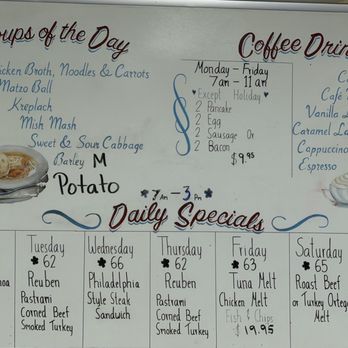 oups of the Day
icken Broth, Noodles & Carrots
Matzo Ball
Kreplach
Mish Mash
Sweet & Sour Cabbage
Barley M
Potato
Monday - Friday
7am - 11am
Except Holiday
2 Pancake
2 Egg
2 Sausage Or
2 Bacon
$9.95
Coffee Drin
C
Café
Vanilla L
Caramel La
Cappuccino
Espresso
7 Am - 3 Pm
Daily Specials
Tuesday
62
Reuben
Pastrami
Corned Beef
Smoked Turkey
Wednesday
66
Philadelphia
Style Steak
Sandwich
Thursday
62
Reuben
Pastrami
Corned Beef
Smoked Turkey
Friday
63
Tuna Melt
Chicken Melt
Fish & Chips
$19.95
Saturday
65
Roast Beef
or Turkey Ortega
Melt